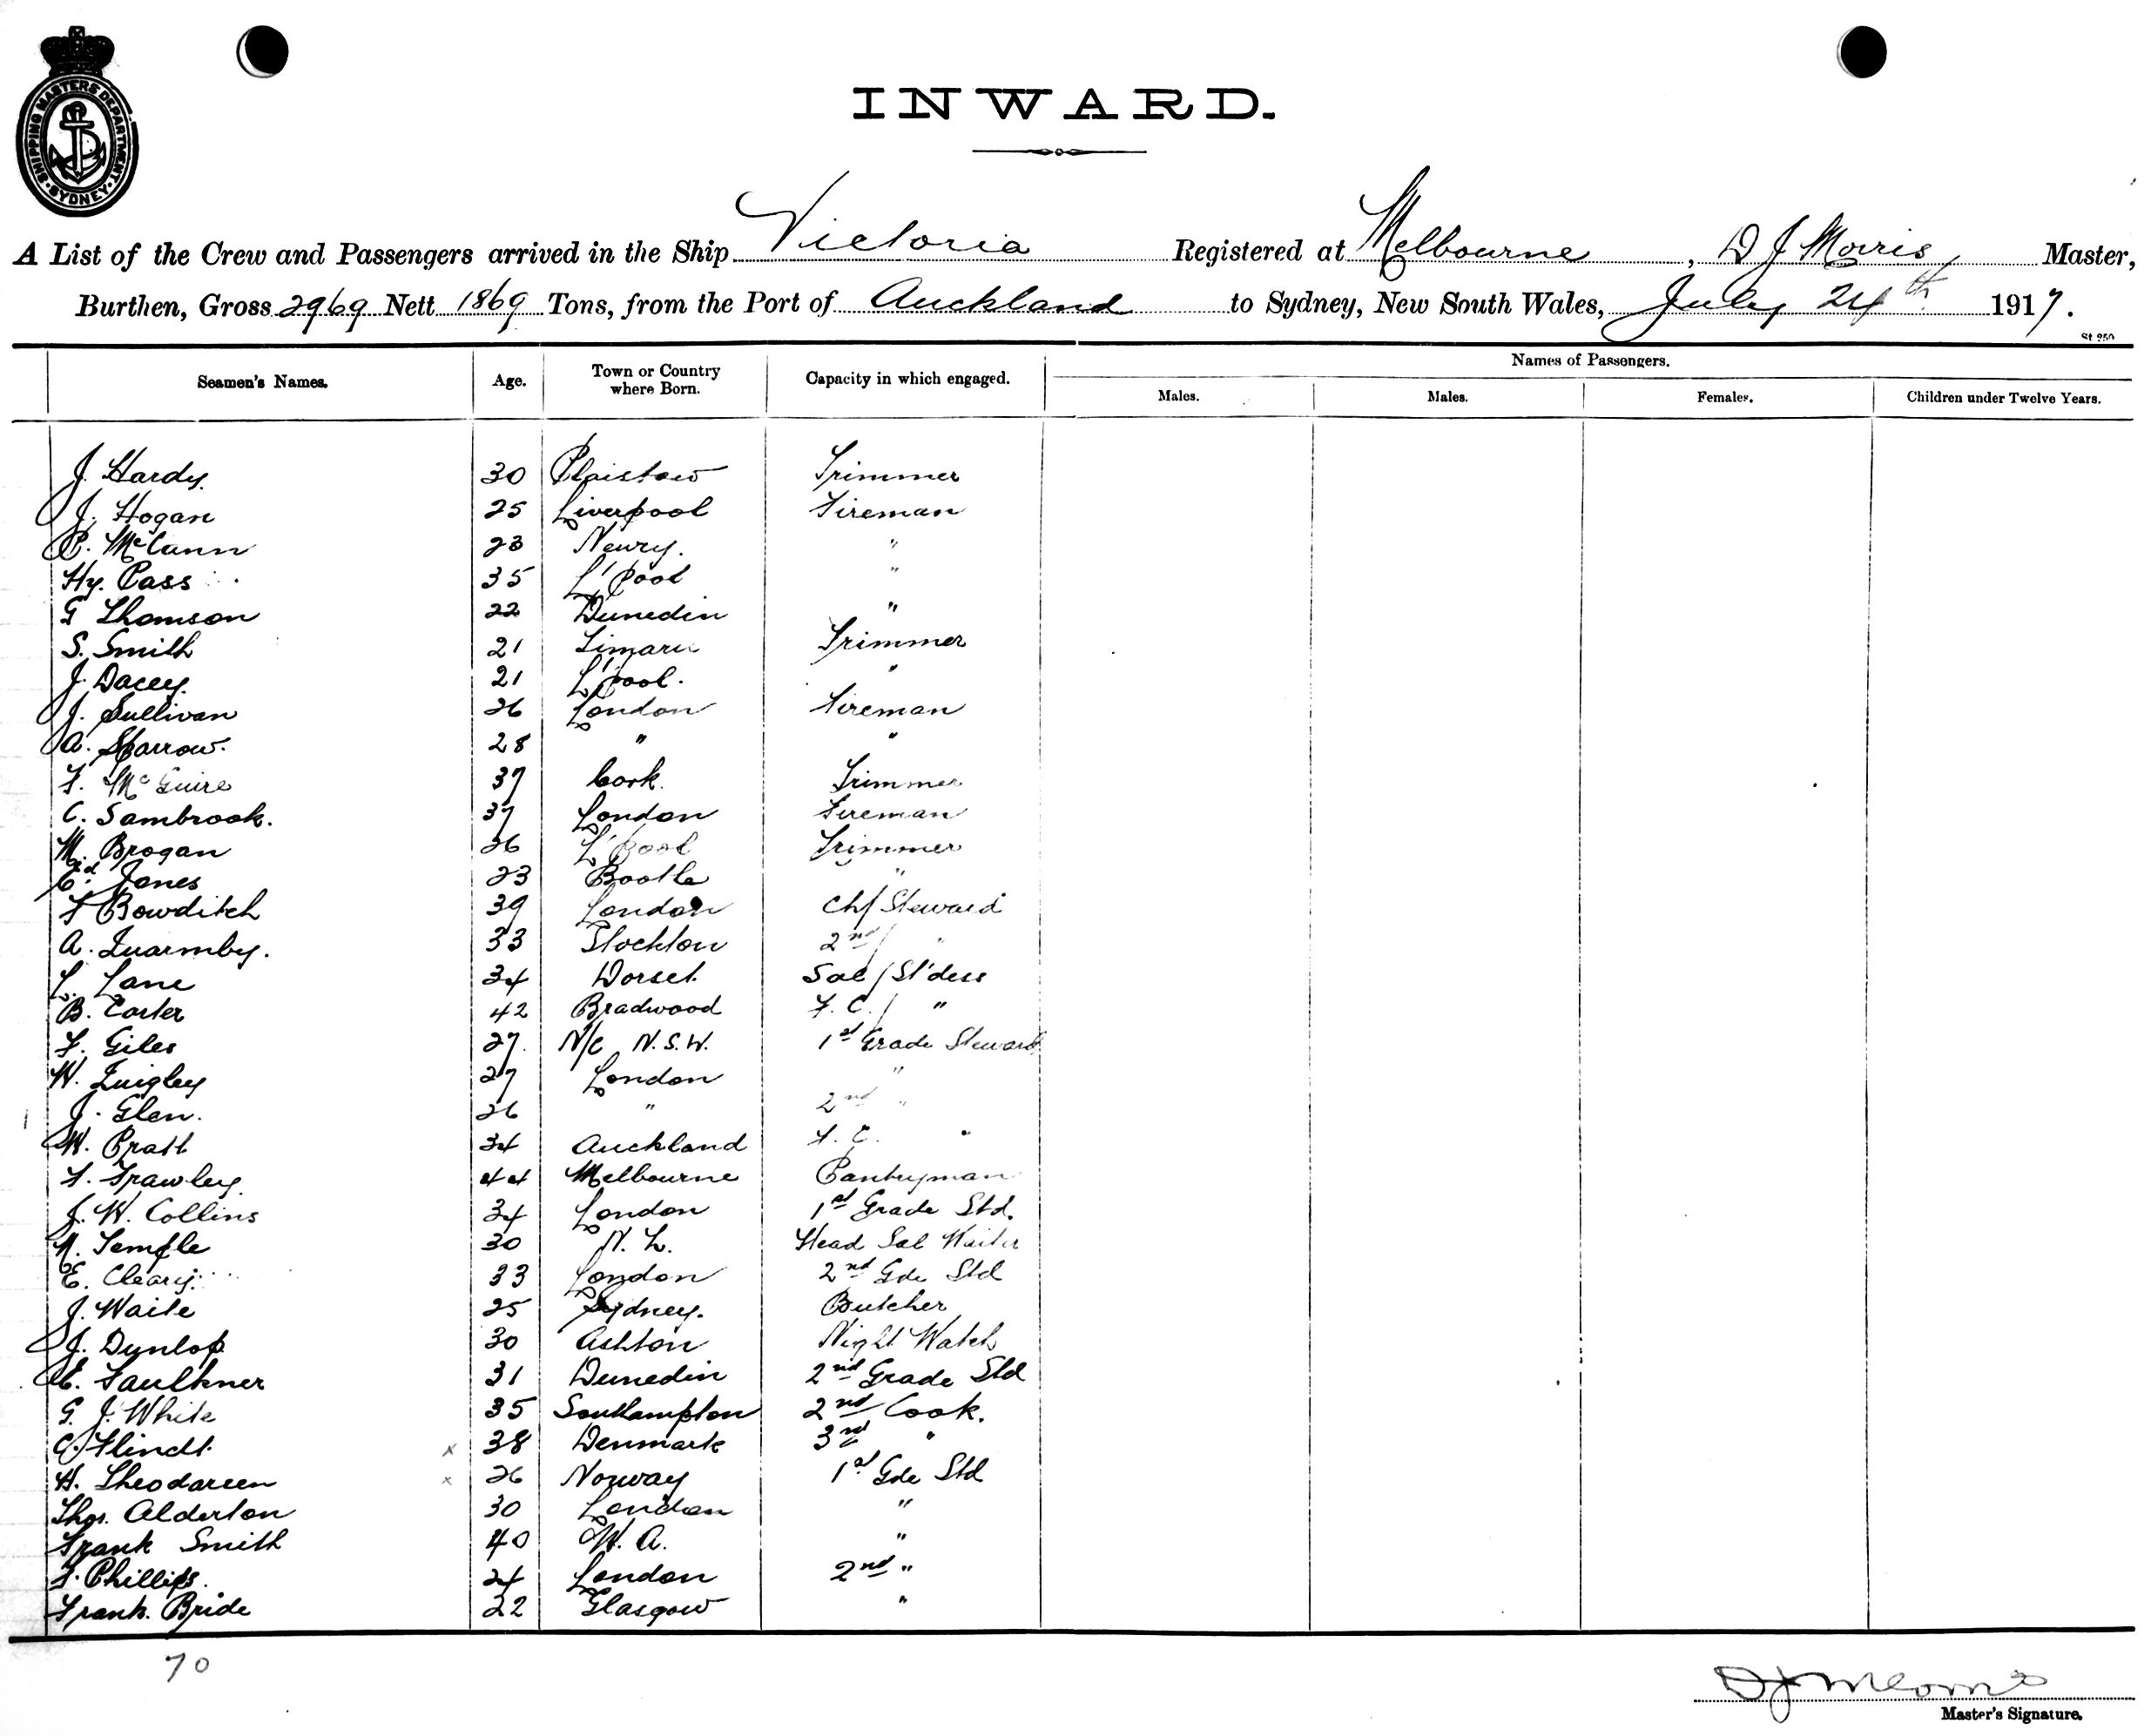 SHIPPING MASTERS DEPARTMENT. SYDNEY
INWARD.
A List of the Crew and Passengers arrived in the Ship Victoria Registered at Melbourne, D J Morris Master,
Burthen, Gross 2969 Nett 1869 Tons, from the Port of Auckland to Sydney, New South Wales, July 24th 1917.
St 250
Seamen's Names. Age. Town or Country where Born. Capacity in which engaged. Names of Passengers.
Males. Males. Females. Children under Twelve Years.
J. Hardy. 30 Plaistow Trimmer
J. Hogan 25 Liverpool Fireman
P. McCann 23 Newry. "
Hy. Pass 35 L'Pool "
G Thomson 22 Dunedin "
S. Smith 21 Timaru Trimmer
J. Dacey. 21 L'pool. "
J. Sullivan 26 London Fireman
A. Sparrow. 28 " "
F. McGuire 37 Cork. Trimmer
C. Sambrook. 37 London Fireman
M. Brogan 26 L'Pool Trimmer
Ed. Jones 23 Bootle "
F Bowditch 39 London Chf Steward
A. Quarmby. 33 Stockton 2nd/ "
L. Lane 34 Dorset. Sal/St'dess
B. Carter 42 Bradwood F.C./ "
F. Giles 27. N/c N.S.W. 1st Grade Steward
W. Quigley 27 London "
J. Glen. 26 " 2nd "
W. Pratt 34 Auckland F.C. "
F. Frawley. 44 Melbourne Pantryman
J. W. Collins 34 London 1st Grade Std.
N. Temple 30 N. Z. Head Sal Waiter
E. Cleary. 33 London 2nd Gde Std
J. Waite 25 Sydney. Butcher
J. Dunlop 30 Ashton Night Watch
E. Faulkner 31 Dunedin 2nd Grade Std
G. J. White 35 Southampton 2nd Cook.
C. Flindt. x 38 Denmark 3rd "
H. Theodarsen x 26 Norway 1st Gde Std
Thos. Alderton 30 London "
Frank Smith 40 W. A. "
F. Phillips. 24 London 2nd "
Frank. Bride 22 Glasgow "
70
D J Morris
Master's Signature.